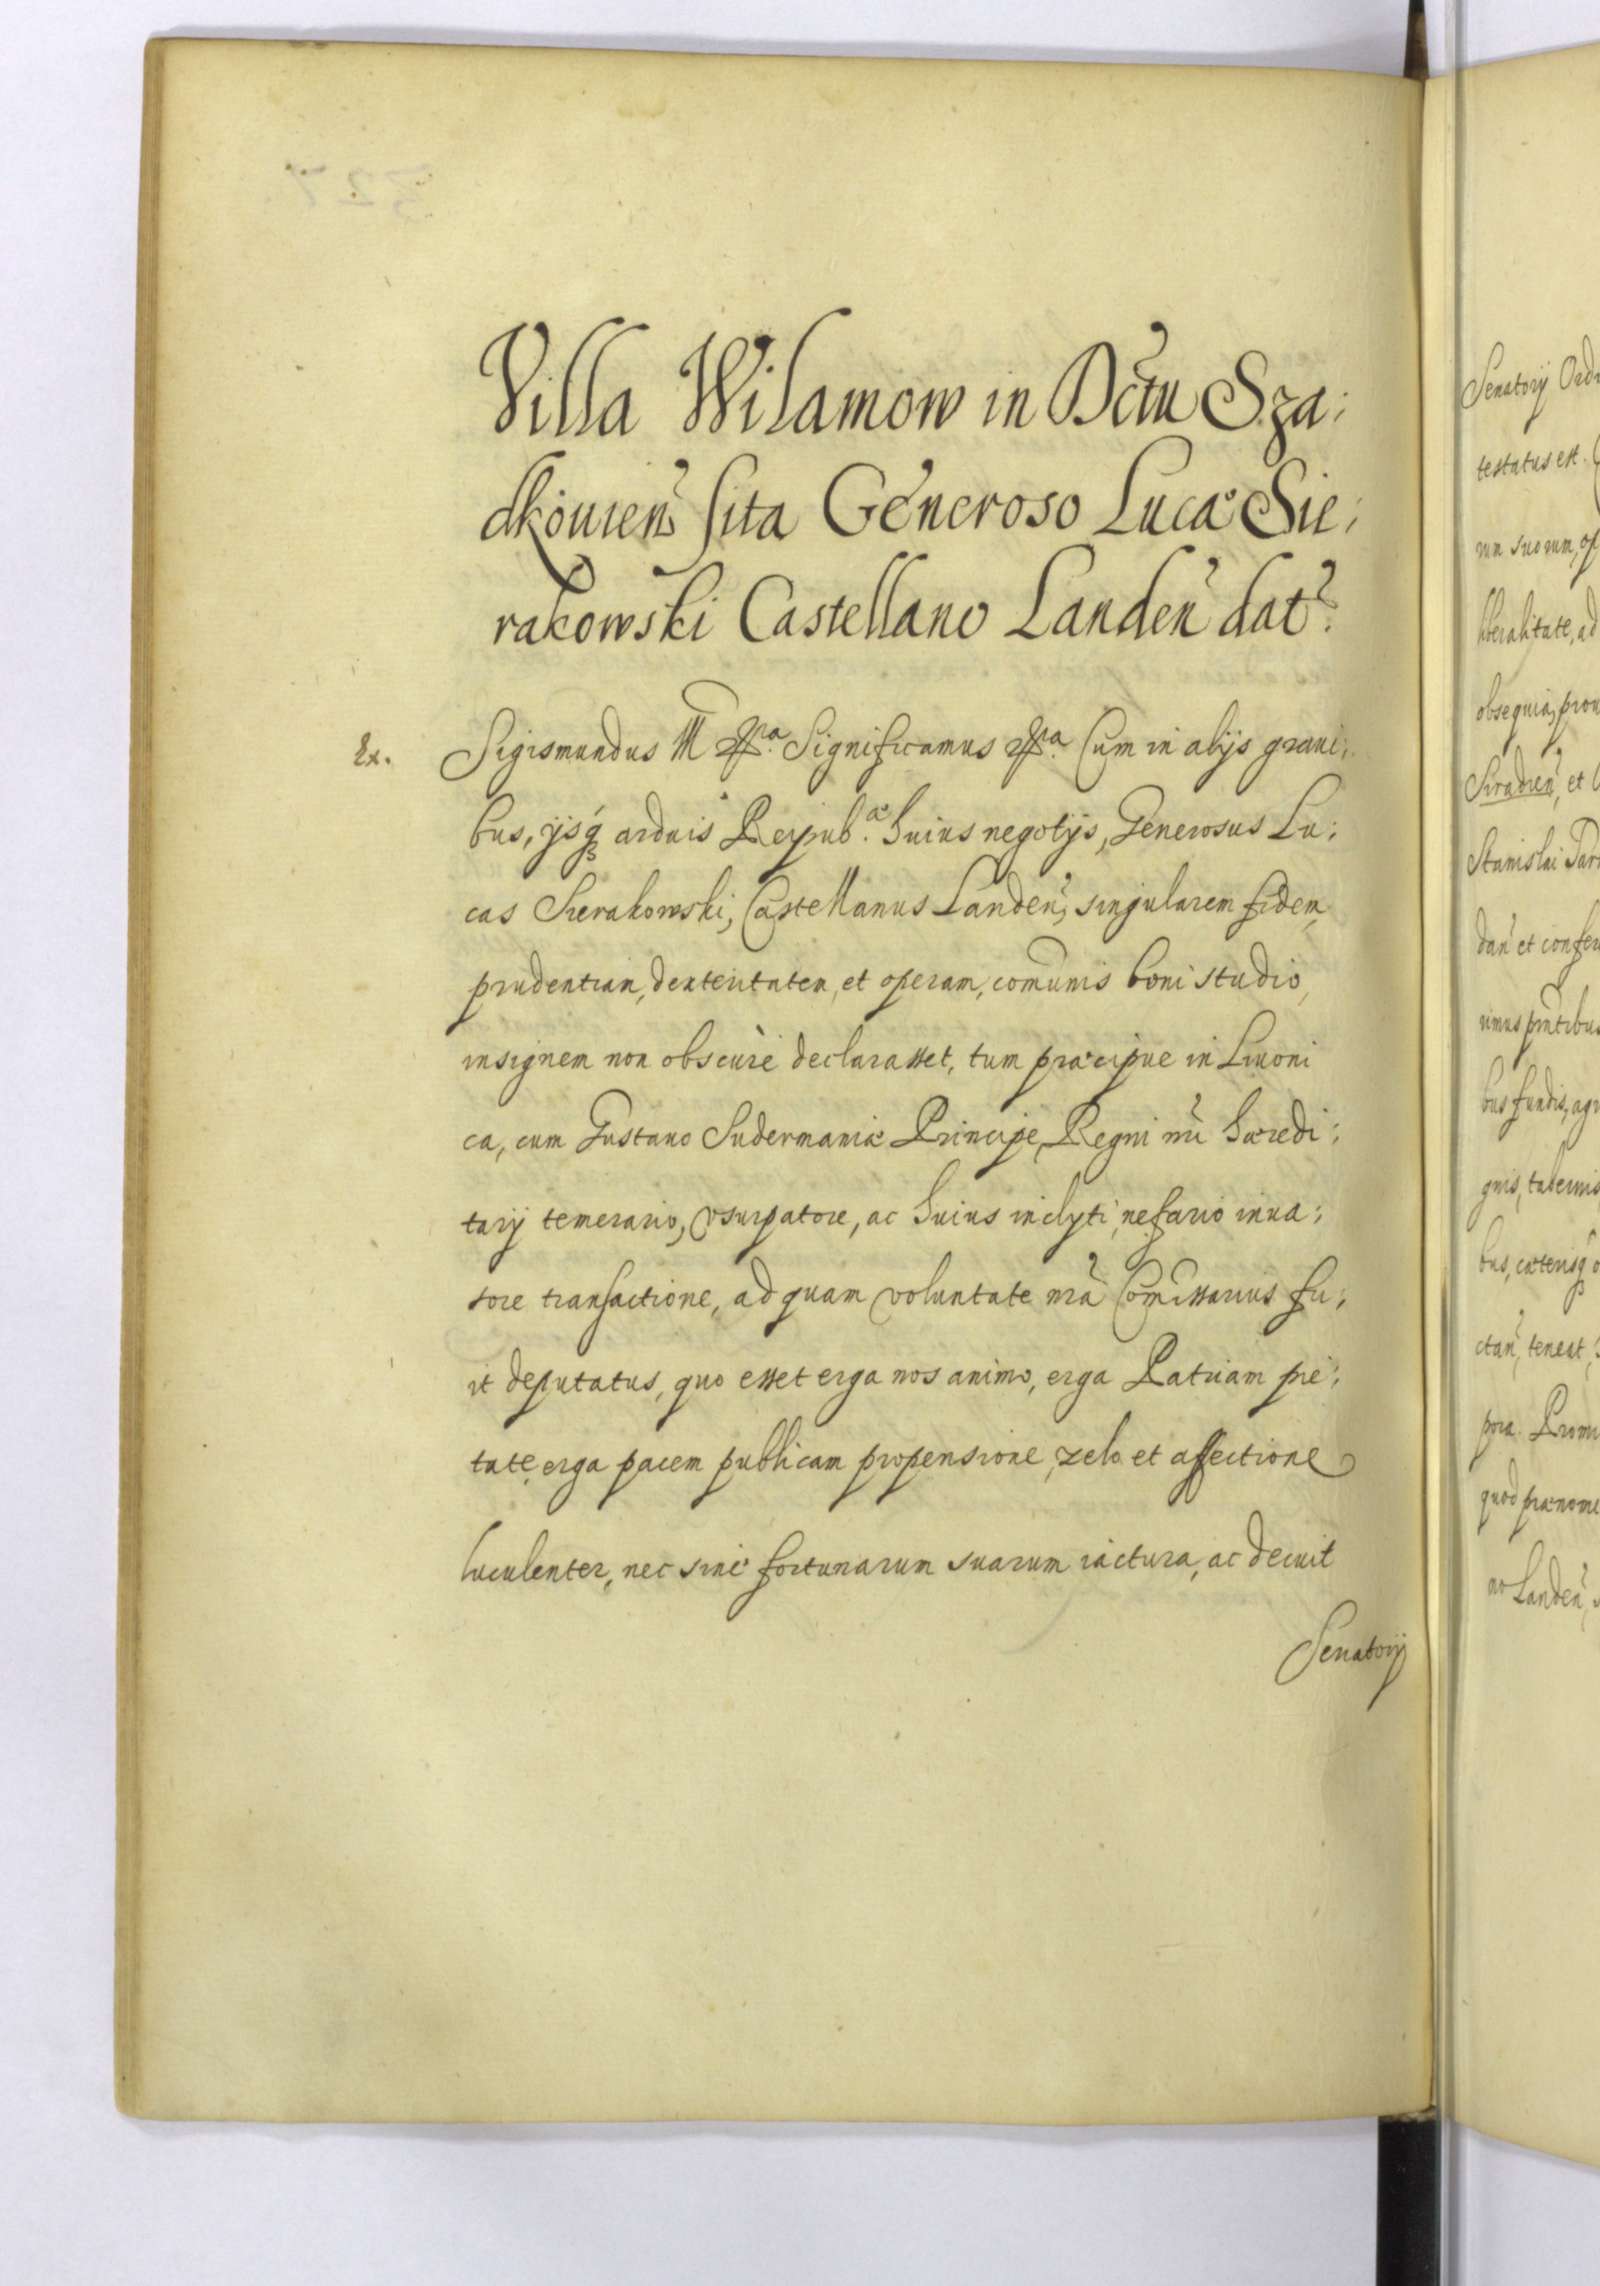 Villa Wilamow in Dctu Sza:
dkouien sita Generoso Lucæ Sie:
rakowski Castellano Landen dat
Ex. Sigismundus III Significamus Cum in alijs graui:
bus, ijsq arduis Reipub.æ huius negotijs, Generosus Lu:
cas Sierakowski, Castellanus Landen, singularem fidem,
prudentiam, dexteritatem, et operam, comunis boni studio,
insignem non obscurè declarasset, tum præcipue in Liuoni
ca, cum Gustauo Sudermaniæ Principe, Regni nri hæredi:
tarij temerario, vsurpatore, ac huius inclyti, nefario inua:
sore transactione, ad quam voluntate nra Comissarius fu:
it deputatus, quo esset erga nos animo, erga Patriam pie:
tate, erga pacem publicam propensione, zelo et affectione
luculenter, nec sine fortunarum suarum iactura, ac decuit
Senatorij
Senatorij Ord
testatus est.
rum suorum, of
liberalitate, ad
obsequia, prou
Siradien, et
Stanislai
dan et confer
rimus pntibus
bus fundis, agr
gnis, tabernis
bus, cæterisq
ctan, teneat,
pora. Promi
quod prænomi
no Landen,